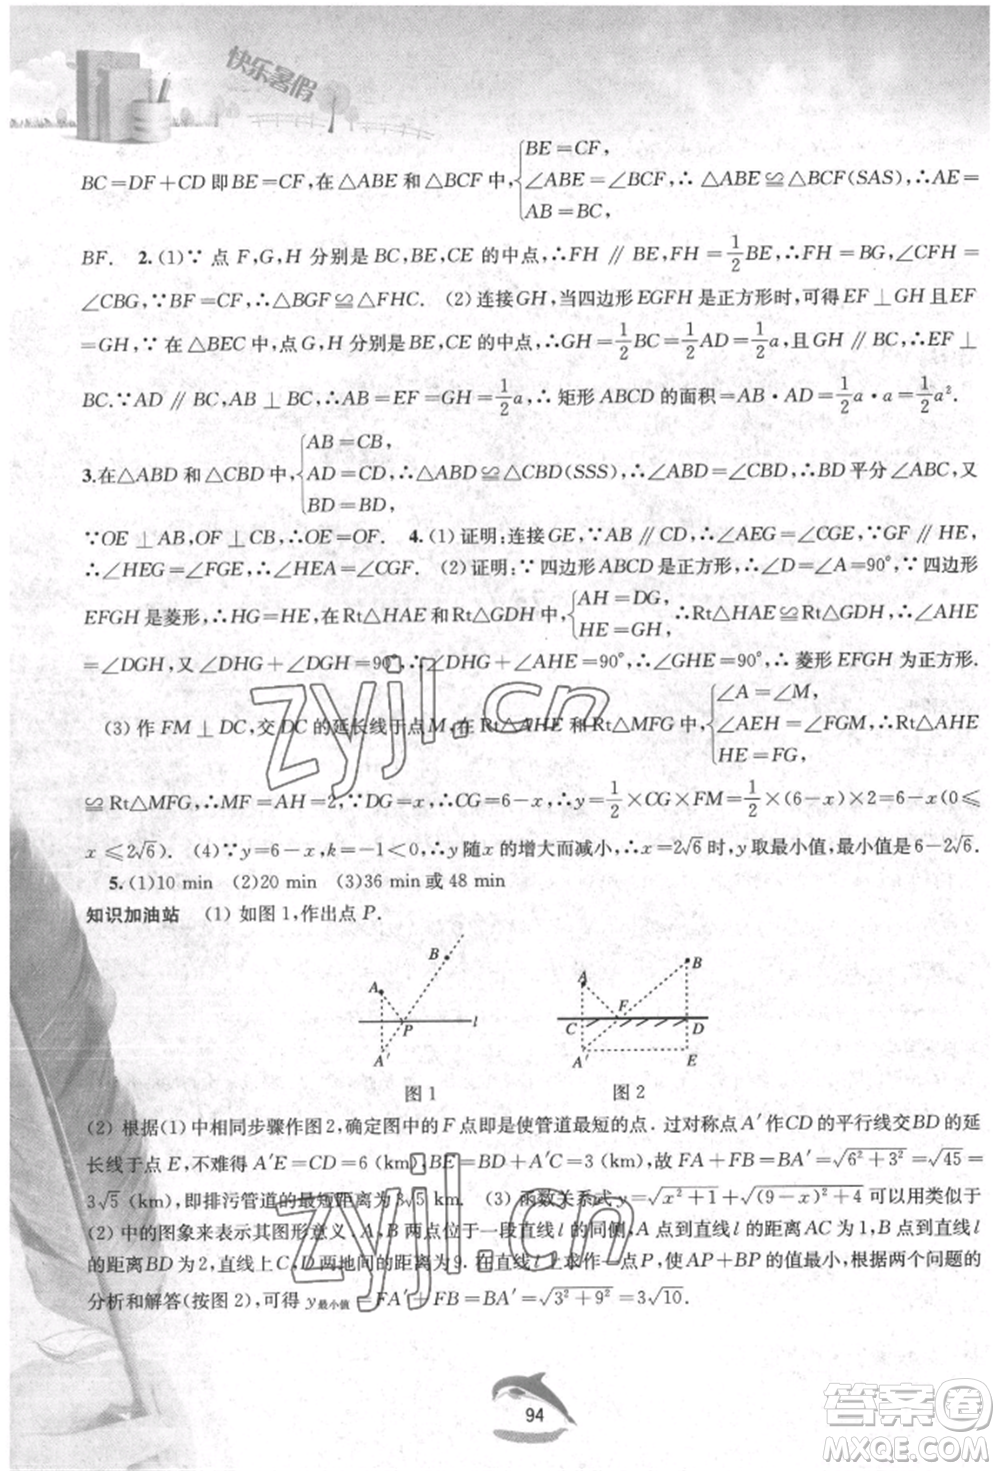 快乐暑假
BC=DF+CD 即BE=CF,在△ABE 和△BCF 中,{BE=CF, ∠ABE=∠BCF, AB=BC, ∴ △ABE≌△BCF(SAS),∴AE=
BF. 2.(1)∵ 点 F,G,H 分别是 BC,BE,CE 的中点,∴FH ∥ BE,FH = 1/2 BE,∴FH = BG,∠CFH =
∠CBG,∵BF =CF,∴△BGF ≌△FHC. (2) 连接 GH,当四边形 EGFH 是正方形时,可得 EF⊥GH且EF
=GH,∵ 在 △BEC 中,点 G,H 分别是 BE,CE 的中点,∴GH=1/2 BC=1/2 AD=1/2 a,且GH∥BC,∴EF ⊥
BC.∵AD ∥ BC,AB ⊥ BC,∴AB=EF=GH=1/2 a,∴ 矩形 ABCD 的面积=AB·AD=1/2 a·a=1/2 a².
3.在△ABD 和△CBD 中,{AB=CB, AD=CD, BD=BD, ∴△ABD ≌ △CBD(SSS),∴∠ABD=∠CBD,∴BD 平分∠ABC,又
∵OE ⊥ AB,OF ⊥ CB,∴OE=OF. 4.(1) 证明:连接 GE,∵AB ∥ CD,∴∠AEG=∠CGE,∵GF∥HE,
∴∠HEG=∠FGE,∴∠HEA=∠CGF. (2) 证明:∵ 四边形 ABCD 是正方形,∴∠D=∠A=90°,∵ 四边形
EFGH 是菱形,∴HG=HE,在 Rt△HAE 和 Rt△GDH 中,{AH=DG, HE=GH, ∴Rt△HAE≌Rt△GDH,∴∠AHE
=∠DGH,又∠DHG+∠DGH=90°,∴∠DHG+∠AHE=90°,∴∠GHE=90°,∴ 菱形 EFGH 为正方形.
(3) 作 FM ⊥DC,交 DC 的延长线于点 M,在 Rt△AHE 和 Rt△MFG 中,{∠A=∠M, ∠AEH=∠FGM, HE=FG, ∴Rt△AHE
≌ Rt△MFG,∴MF=AH=2,∵DG=x,∴CG=6-x,∴y=1/2×CG×FM=1/2×(6-x)×2=6-x(0≤
x≤2√6). (4)∵y=6-x,k=-1<0,∴y 随 x 的增大而减小,∴x=2√6 时,y 取最小值,最小值是6-2√6.
5.(1)10 min (2)20 min (3)36 min 或 48 min
知识加油站 (1) 如图 1,作出点 P.
A B P l A′
图 1
A B F C D A′ E
图 2
(2) 根据(1) 中相同步骤作图 2,确定图中的 F 点即是使管道最短的点. 过对称点A′作CD的平行线交BD的延
长线于点 E,不难得出 A′E=CD=6 (km),BE=BD+DE=BD+A′C=3,故 FA+FB=BA′=√(6²+3²)=
3√5 (km),即排污管道的最短距离为3√5 km. (3) 函数关系式 y=√(x²+1)+√((9-x)²+4) 可以用类似于
(2) 中的图象来表示其图形意义,A,B 两点位于一段直线l 的同侧,A 点到直线l 的距离 AC 为 1,B 点到直线l 的
距离BD为2,这里直线上C,D两地间的距离为 9. 在直线l上求作一点P,使 AP+BP 的值最小,根据两个问题的
分析和解答(按图 2),可得 y最小值=FA+FB=BA′=√(3²+9²)=3√10.
zyjl.cn
zyjl.cn
94
答案圈
MXQE.COM